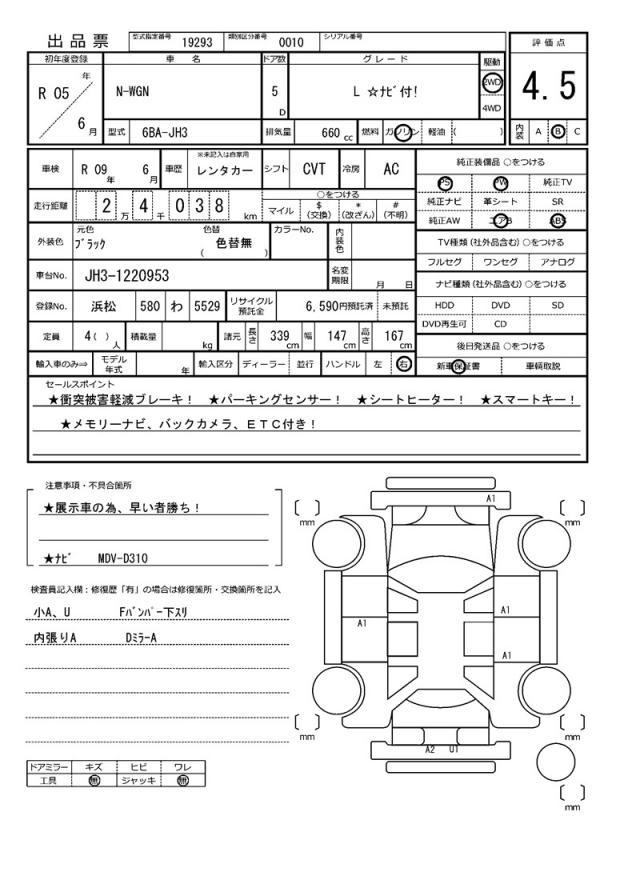 出品票
型式指定番号 19293 類別区分番号 0010 シリアル番号
評価点
4.5
内装 A B C
初年度登録 車名 ドア数 グレード 駆動
R 05 年 6 月
N-WGN
5 D
L ☆ﾅﾋﾞ付!
2WD
4WD
型式 6BA-JH3 排気量 660 cc 燃料 ガソリン 軽油 ( )
車検 R 09 年 6 月 車歴 ※未記入は自家用 レンタカー シフト CVT 冷房 AC
走行距離 2 万 4 千 0 3 8 km
○をつける
マイル $ (交換) * (改ざん) # (不明)
外装色 元色 ブラック 色替 色替無 ( ) カラーNo. 内装色
車台No. JH3-1220953 名変期限 月 日
登録No. 浜松 580 わ 5529 リサイクル預託金 6,590円預託済 未預託
定員 4( )人 積載量 kg 諸元 長さ 339 cm 幅 147 cm 高さ 167 cm
輸入車のみ⇒ モデル年式 年 輸入区分 ディーラー 並行 ハンドル 左 右
純正装備品 ○をつける
PS PW 純正TV
純正ナビ 革シート SR
純正AW エアB ABS
TV種類(社外品含む)○をつける
フルセグ ワンセグ アナログ
ナビ種類(社外品含む)○をつける
HDD DVD SD
DVD再生可 CD
後日発送品 ○をつける
新車保証書 車輌取説
セールスポイント
★衝突被害軽減ブレーキ! ★パーキングセンサー! ★シートヒーター! ★スマートキー!
★メモリーナビ、バックカメラ、ETC付き!
注意事項・不具合箇所
★展示車の為、早い者勝ち!
★ﾅﾋﾞ MDV-D310
検査員記入欄:修復歴「有」の場合は修復箇所・交換箇所を記入
小A、U Fﾊﾞﾝﾊﾟｰ下ｽﾘ
内張りA DﾐﾗｰA
ドアミラー キズ ヒビ ワレ
工具 無 ジャッキ 無
A1
[ ] mm
[ ] mm
A1
A1
A1
[ ] mm
[ ] mm
A2 U1
[ ] mm